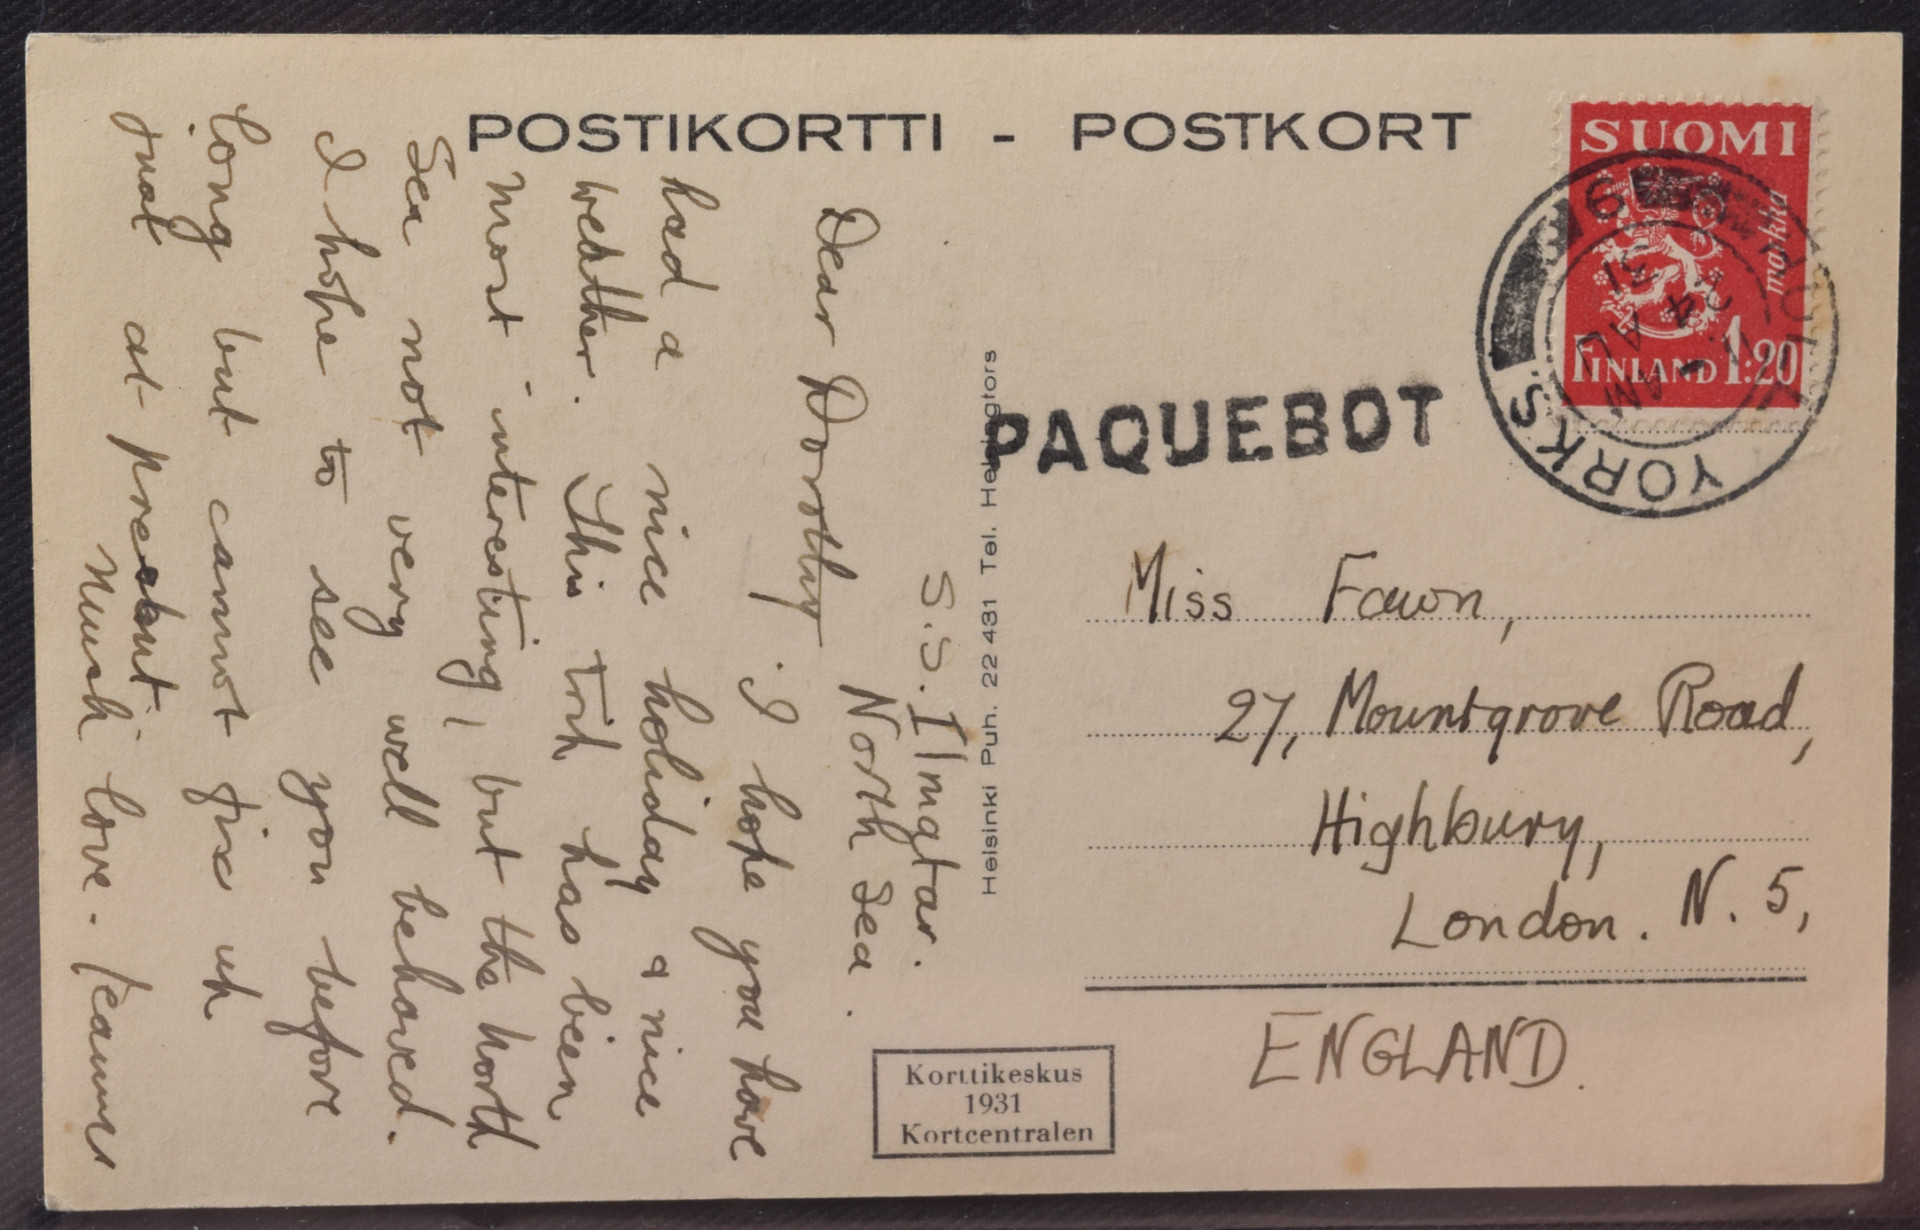 POSTIKORTTI - POSTKORT
SUOMI
markkaa
FINLAND 1:20
HULL
YORKS
1 - AM
24 AU
31
PAQUEBOT
S.S. Ilmatar.
North Sea.
Dear Dorothy. I hope you have
had a nice holiday & nice
weather. This trip has been
most interesting, but the North
Sea not very well behaved.
I hope to see you before
long but cannot fix up
just at present.
Much love.
Helsinki Puh. 22 431 Tel. Helsingfors
Miss Fawn,
27, Mountgrove Road,
Highbury,
London. N. 5,
ENGLAND.
Korttikeskus
1931
Kortcentralen